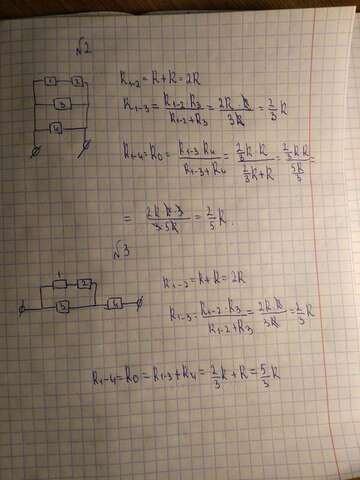 √2
1 2
3
4
R₁₋₂ = R + R = 2R
R₁₋₃ = (R₁₋₂ · R₃)/(R₁₋₂ + R₃) = (2R · R)/(3R) = 2/3 R
R₁₋₄ = R₀ = (R₁₋₃ R₄)/(R₁₋₃ + R₄) = (2/3 R · R)/(2/3 R + R) = (2/3 R R)/(5R/3) =
= (2R · R · 3)/(3 · 5R) = 2/5 R.
√3
1
2
3
4
R₁₋₂ = R + R = 2R
R₁₋₃ = (R₁₋₂ · R₃)/(R₁₋₂ + R₃) = (2R · R)/(3R) = 2/3 R
R₁₋₄ = R₀ = R₁₋₃ + R₄ = 2/3 R + R = 5/3 R